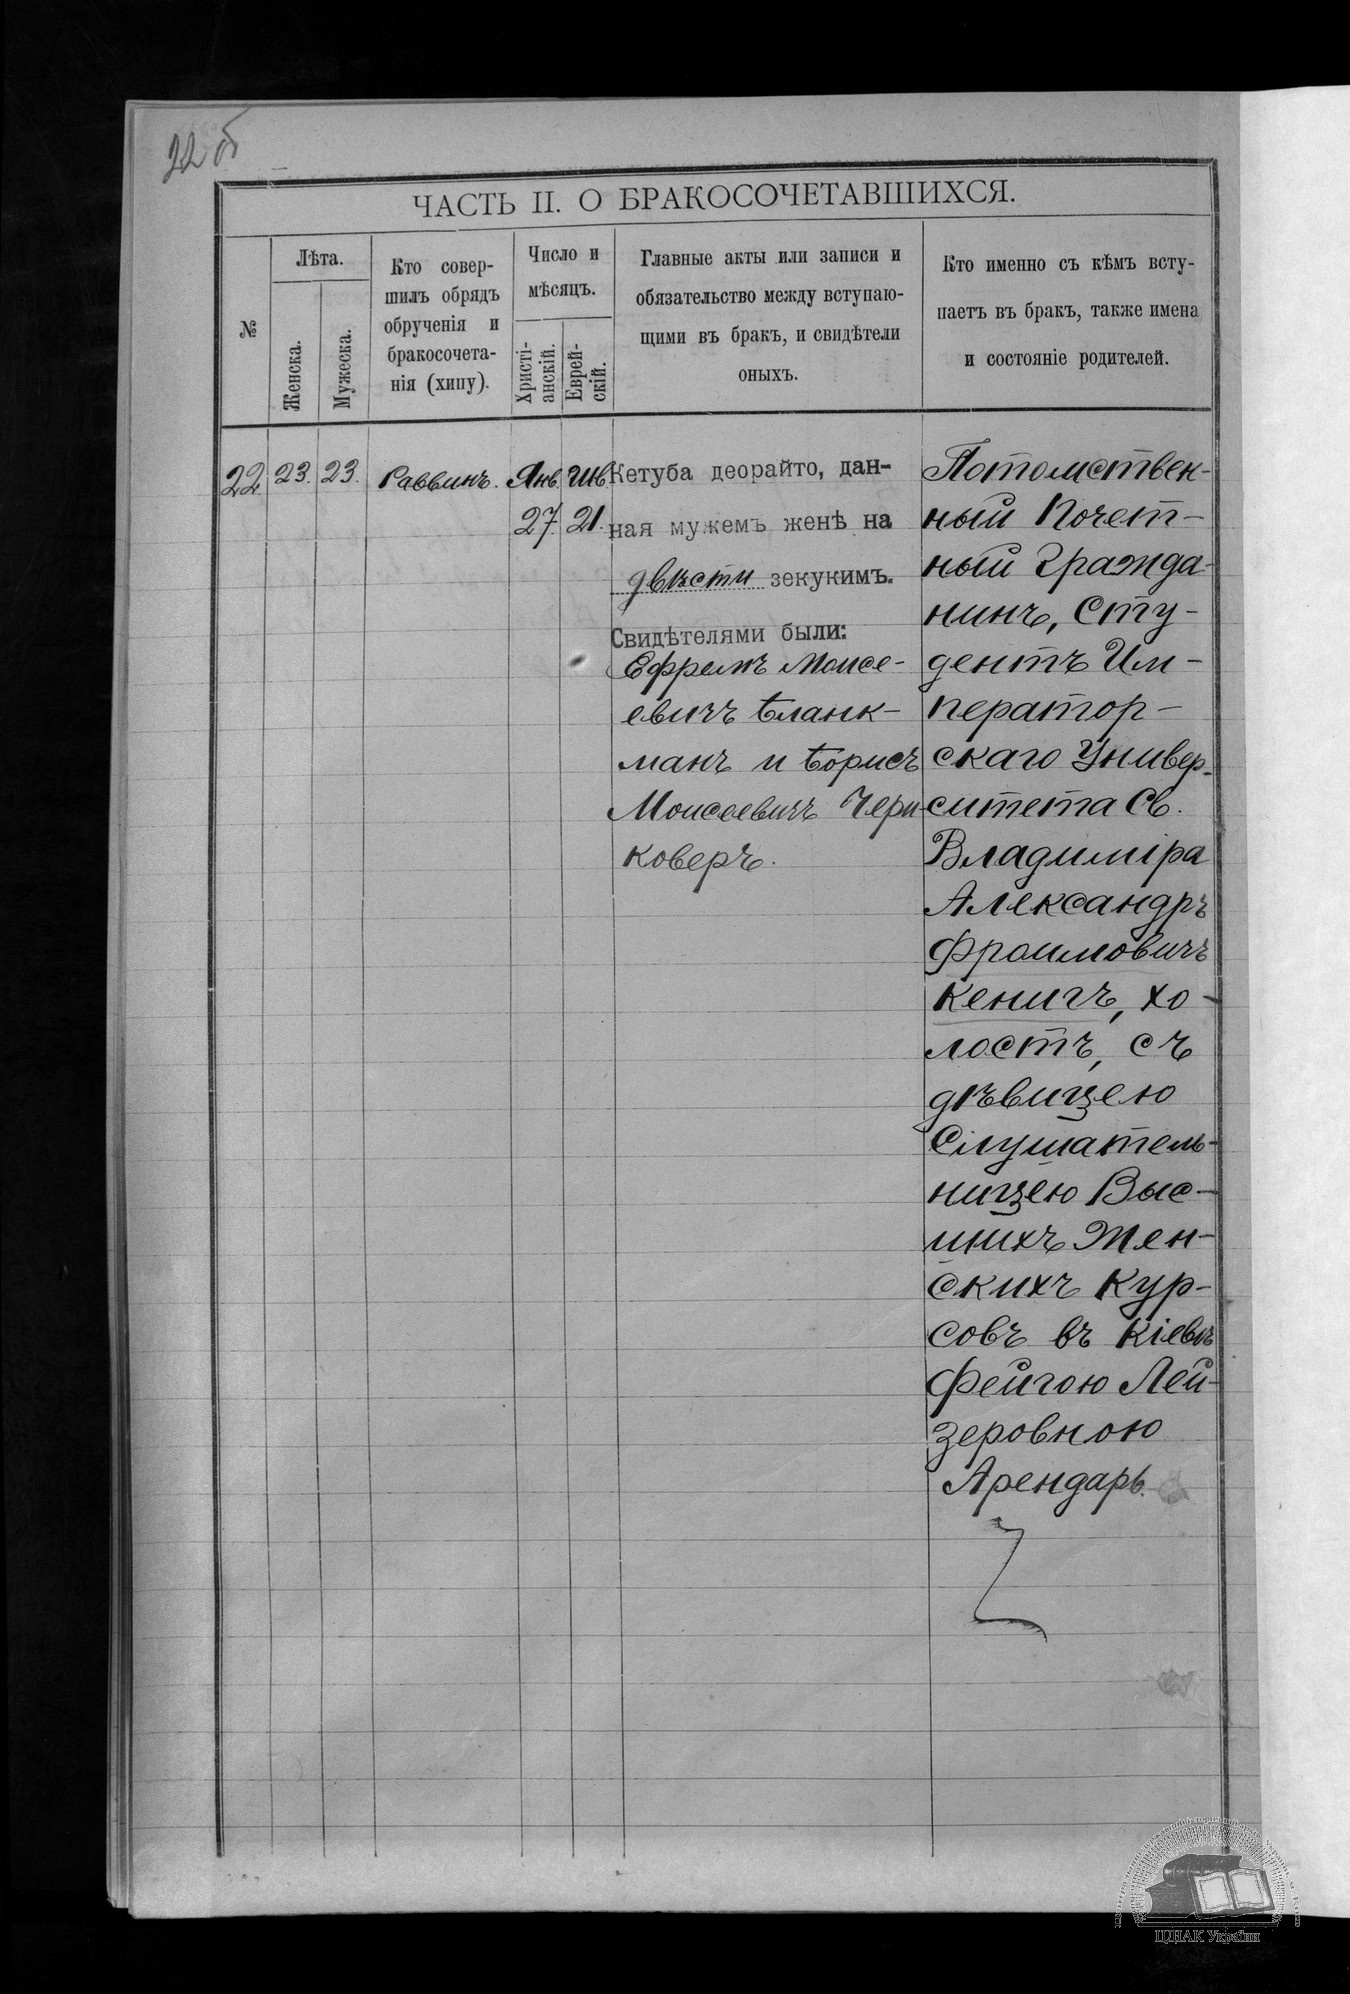 22 об
ЧАСТЬ II. О БРАКОСОЧЕТАВШИХСЯ.
№
Лѣта.
Женска.
Мужеска.
Кто совер-
шилъ обрядъ
обрученія и
бракосочета-
нія (хипу).
Число и
мѣсяцъ.
Христі-
анскій.
Еврей-
скій.
Главные акты или записи и
обязательство между вступаю-
щими въ бракъ, и свидѣтели
оныхъ.
Кто именно съ кѣмъ всту-
паетъ въ бракъ, также имена
и состояніе родителей.
22
23.
23.
Раввинъ.
Янв.
27.
Шв.
21.
Кетуба деорайто, дан-
ная мужемъ женѣ на
двѣсти зекукимъ.
Свидѣтелями были:
Ефремъ Моисе-
евичъ Бланк-
манъ и Борисъ
Моисеевичъ Чери-
коверъ.
Потомствен-
ный Почет-
ный Гражда-
нинъ, Сту-
дентъ Им-
ператор-
скаго Универ-
ситета Св.
Владиміра
Александръ
Фроимовичъ
Кенигъ, хо-
лостъ, съ
дѣвицею
Слушатель-
ницею Выс-
шихъ Жен-
скихъ Кур-
совъ въ Кіевѣ
Фейгою Лей-
зеровною
Арендарь.
ЦДІАК України